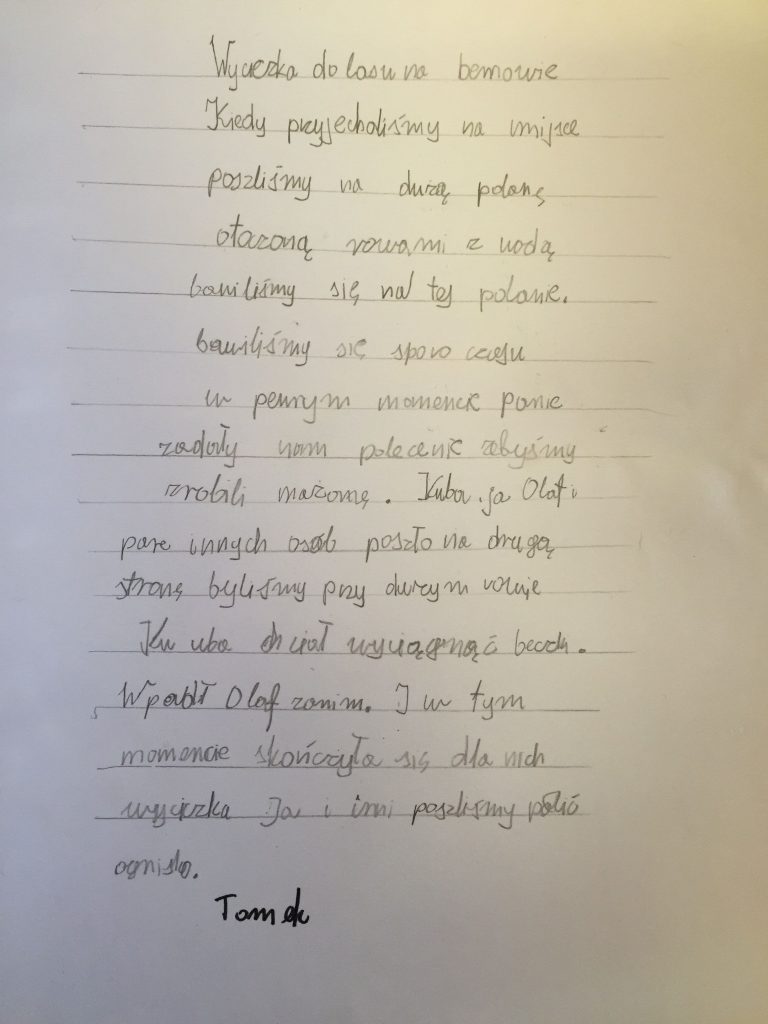 Wycieczka do lasu na bemowie
Kiedy przyjechaliśmy na
poszliśmy na dużą polanę
otoczoną rowami z wodą
bawiliśmy się na tej polanie.
bawiliśmy się sporo czasu
w pewnym momencie panie
zadały nam polecenie żebyśmy
zrobili . Kuba ja Olaf i
pare innych osób poszło na drugą
stronę byliśmy przy dużym rowie
Ku uba chciał wyciągnąć .
Wpadł Olaf zanim. I w tym
momencie skończyła się dla nich
wycieczka Ja i inni poszliśmy palić
ognisko.
Tomek